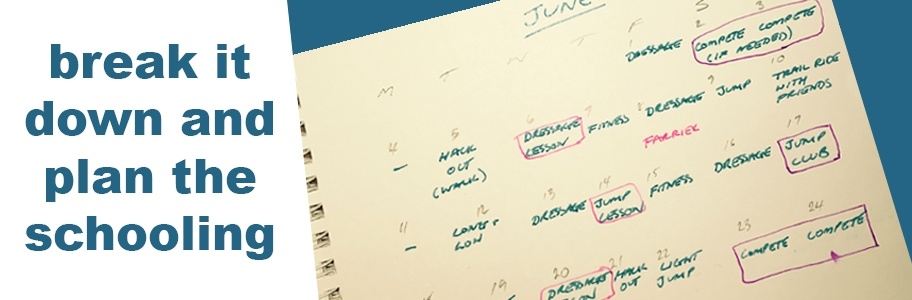 break it
down and
plan the
schooling
JUNE
M T W T F S
1 2 3
DRESSAGE COMPETE COMPETE
(IF NEEDED)
4 5 6 7 8 9 10
- HACK OUT (WALK)
DRESSAGE LESSON
FITNESS
DRESSAGE
FARRIER
JUMP
TRAIL RIDE
WITH
FRIENDS
11 12 13 14 15 16 17
- LONG +
LOW
DRESSAGE
JUMP
LESSON
FITNESS
DRESSAGE
JUMP
CLUB
19 20 21 22 23 24
DRESSAGE
HACK
OUT
LIGHT
JUMP
COMPETE COMPETE